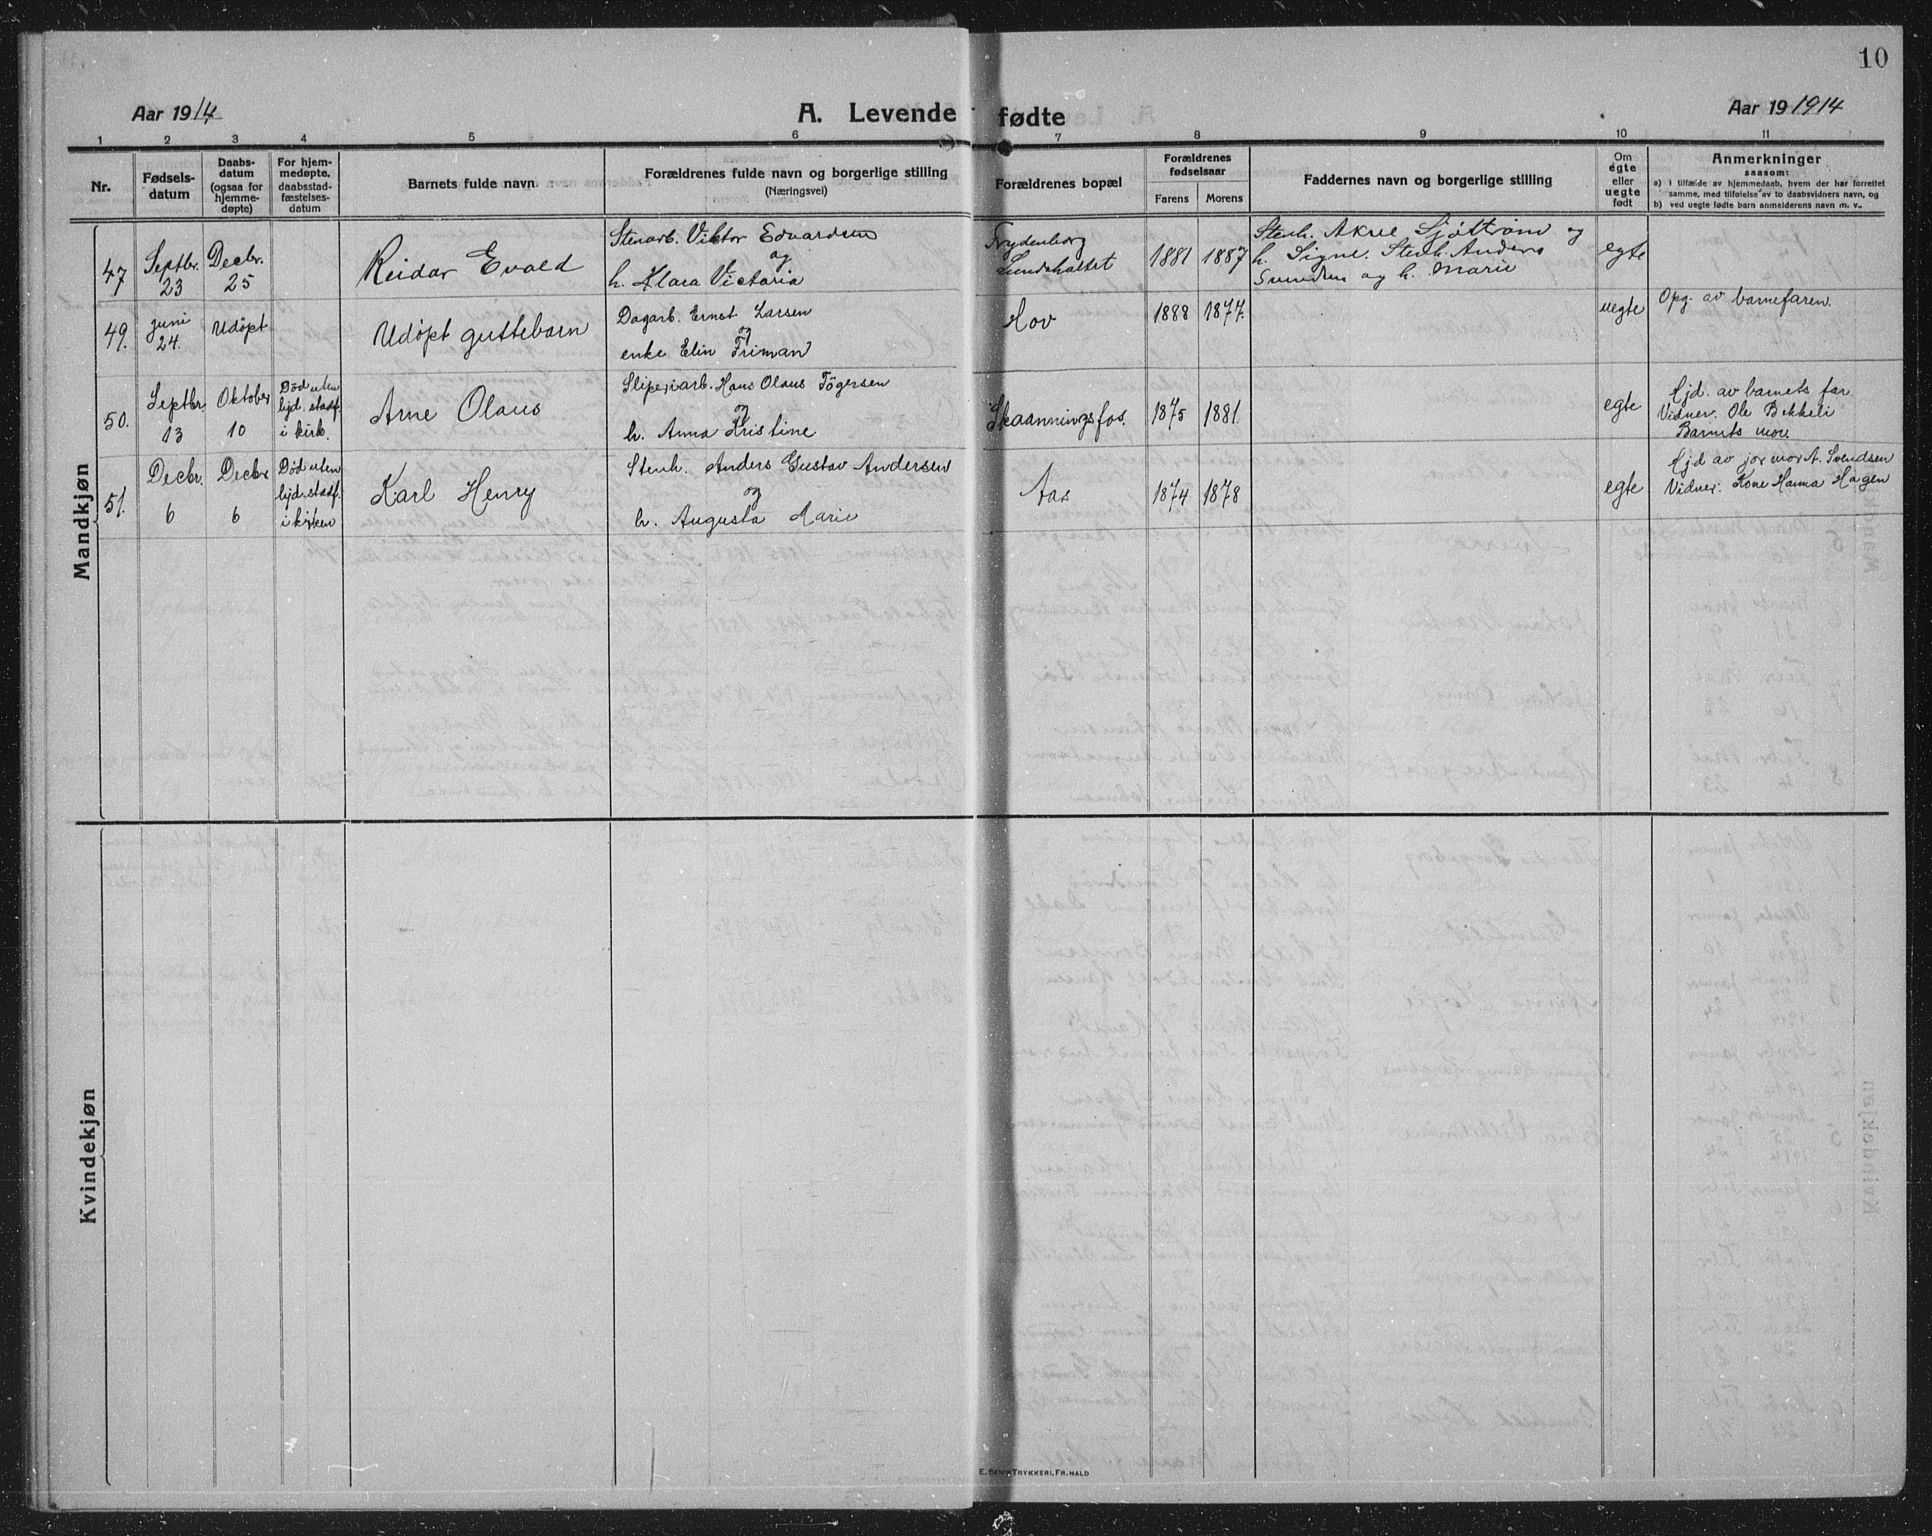 10
Aar 1914
A. Levende fødte
Aar 19 1914
1 2 3 4 5 6 7 8 9 10 11
Nr.
Fødsels-
datum
Daabs-
datum
(ogsaa for
hjemme-
døpte)
For hjem-
medøpte,
daabsstad-
fæstelses-
datum
Barnets fulde navn
Forældrenes fulde navn og borgerlige stilling
(Næringsvei)
Forældrenes bopæl
Forældrenes
fødselsaar
Farens Morens
Faddernes navn og borgerlige stilling
Om
egte
eller
uegte
født
Anmerkninger
saasom:
a) i tilfælde av hjemmedaab, hvem der har forrettet
samme, med tilføielse av to daabsvidners navn, og
b) ved uegte fødte barn anmelderens navn m. v.
Mandkjøn
47
Septbr.
23
Decbr.
25
Reidar Evald
Stenarb. Viktor Edvardsen
og
h. Klara Victoria
Frydenborg
1881 1887
Stenh. Aksel Sjøttrøm og
h. Signe. Stenh. Anders
Svendsen og h. Marie
egte
49.
juni
24.
Udøpt
Udøpt guttebarn
Dagarb. Ernst Larsen
og
enke Elin Friman
Hov
1888 1877.
uegte
Opg. av barnefaren.
50.
Septbr.
13
Oktober
10
Død uten
hjd. stadf.
i kirk.
Arne Olaus
Sliperiarb. Hans Olaus Tøgersen
og
h. Anna Kristine
Skaanningsfos.
1875 1881
egte
Hjd. av barnets far
Vidner. Ole Bekkeli
Barnets mor.
51.
Decbr.
6
Decbr
6
Død uten
hjd. stadf.
i kirken
Karl Henry
Stenh. Anders Gustav Andersen
og
h. Augusta Marie
Aas
1874 1878
egte
Hjd av jormor A. Svendsen
Vidner: Kone Hanna Hagen
Kvindekjøn
E. Sems Trykkeri, Fr.hald